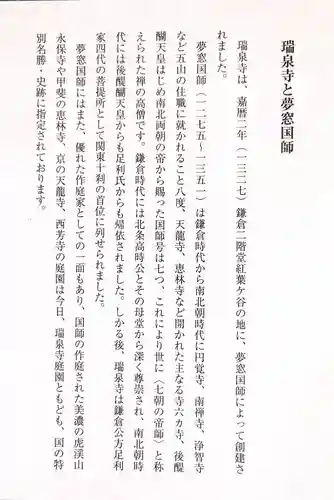 瑞泉寺と夢窓国師
瑞泉寺は、嘉暦二年（一三二七）鎌倉二階堂紅葉ケ谷の地に、夢窓国師によって創建さ
れました。
夢窓国師（一二七五〜一三五一）は鎌倉時代から南北朝時代に円覚寺、南禅寺、浄智寺
など五山の住職に就かれること八度、天龍寺、恵林寺など開かれた主なる寺六カ寺、後醍
醐天皇はじめ南北両朝の帝から賜った国師号は七つ、これにより世に〈七朝の帝師〉と称
えられた禅の高僧です。鎌倉時代には北条高時公とその母堂から深く尊崇され、南北朝時
代には後醍醐天皇からも足利氏からも帰依されました。しかる後、瑞泉寺は鎌倉公方足利
家四代の菩提所として関東十刹の首位に列せられました。
夢窓国師にはまた、優れた作庭家としての一面もあり、国師の作庭された美濃の虎渓山
永保寺や甲斐の恵林寺、京の天龍寺、西芳寺の庭園は今日、瑞泉寺庭園ともども、国の特
別名勝・史跡に指定されております。